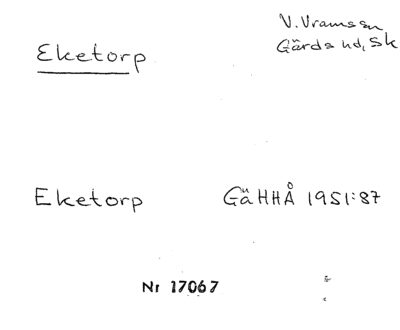 Eketorp
V. Vramssn
Gärds hd, Sk
Eketorp GäHHÅ 1951:87
Nr 17067